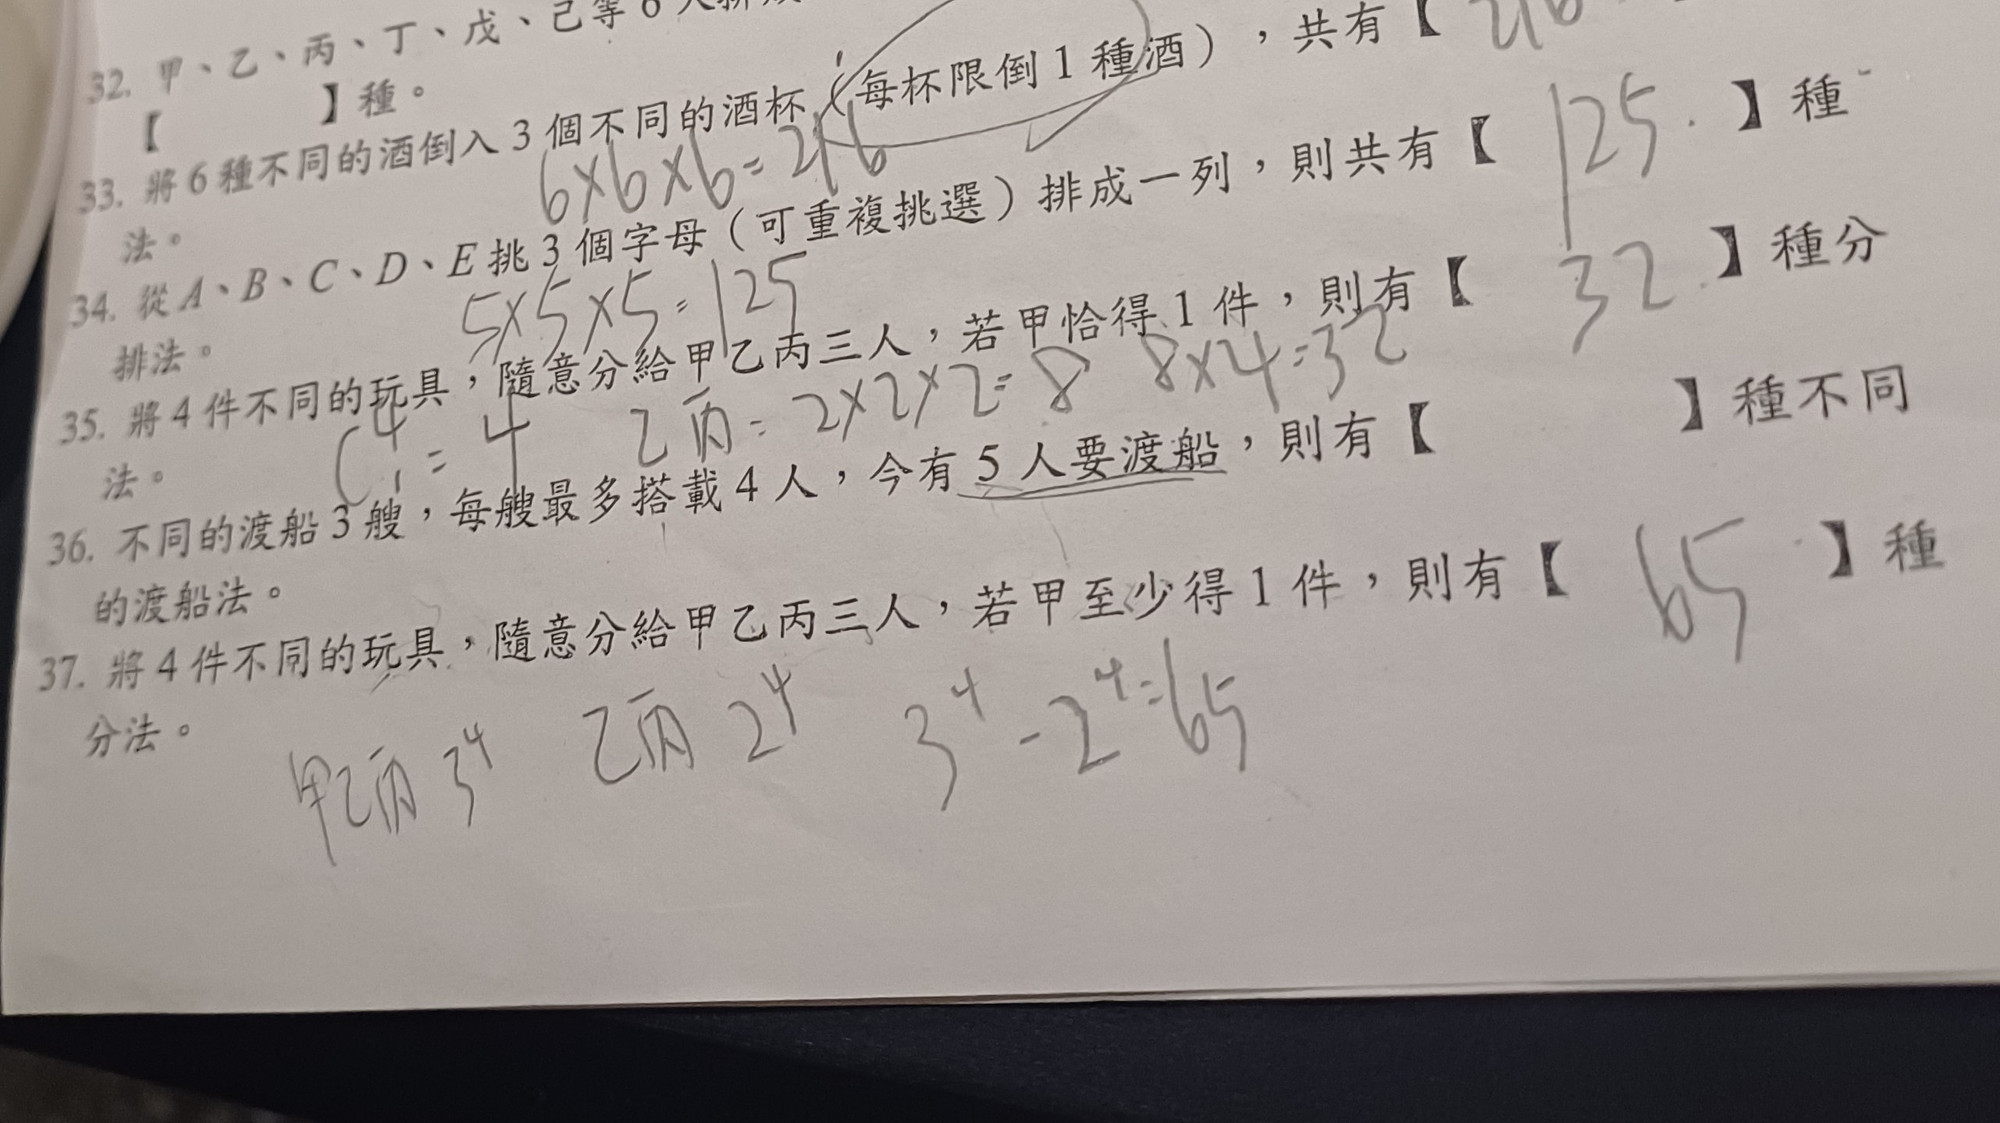 32. 甲、乙、丙、丁、戊、己等 6 人排成
【 】種。
33. 將 6 種不同的酒倒入 3 個不同的酒杯（每杯限倒 1 種酒），共有【 216
6×6×6=216
法。
34. 從 A、B、C、D、E 挑 3 個字母（可重複挑選）排成一列，則共有【 125 】種
5×5×5=125
排法。
35. 將 4 件不同的玩具，隨意分給甲乙丙三人，若甲恰得 1 件，則有【 32 】種分
C⁴₁=4 乙丙=2×2×2=8 8×4=32
法。
36. 不同的渡船 3 艘，每艘最多搭載 4 人，今有 5 人要渡船，則有【 】種不同
的渡船法。
37. 將 4 件不同的玩具，隨意分給甲乙丙三人，若甲至少得 1 件，則有【 65 】種
分法。
甲乙丙 3⁴ 乙丙 2⁴ 3⁴-2⁴=65